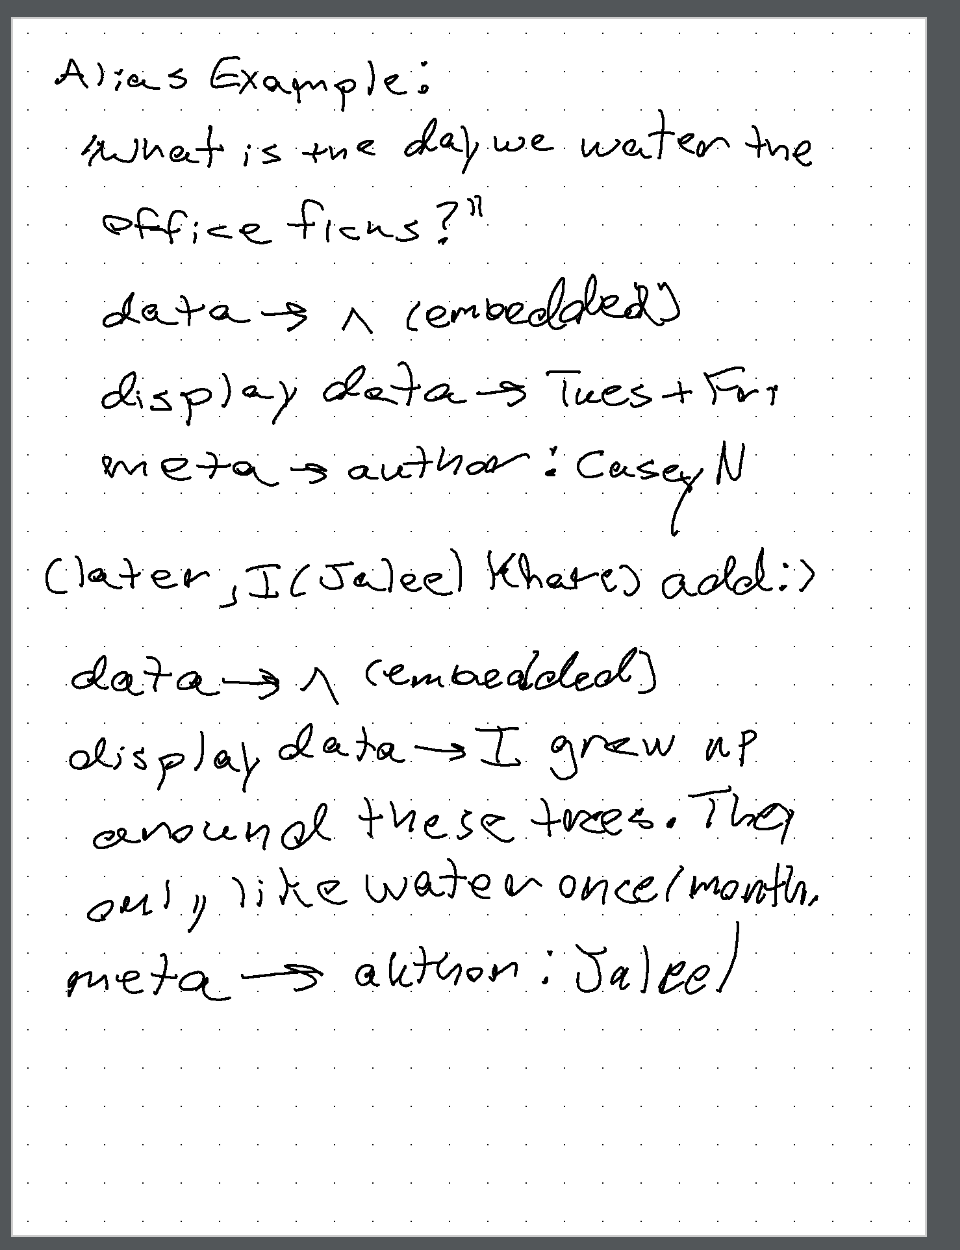 Alias Example:
"What is the day we water the
office ficus?"
data → ^ (embedded)
display data → Tues + Fri
meta → author: Casey N
(later, I (Jaleel Khare) add:)
data → ^ (embedded)
display data → I grew up
around these trees. They
only like water once/month.
meta → author: Jaleel